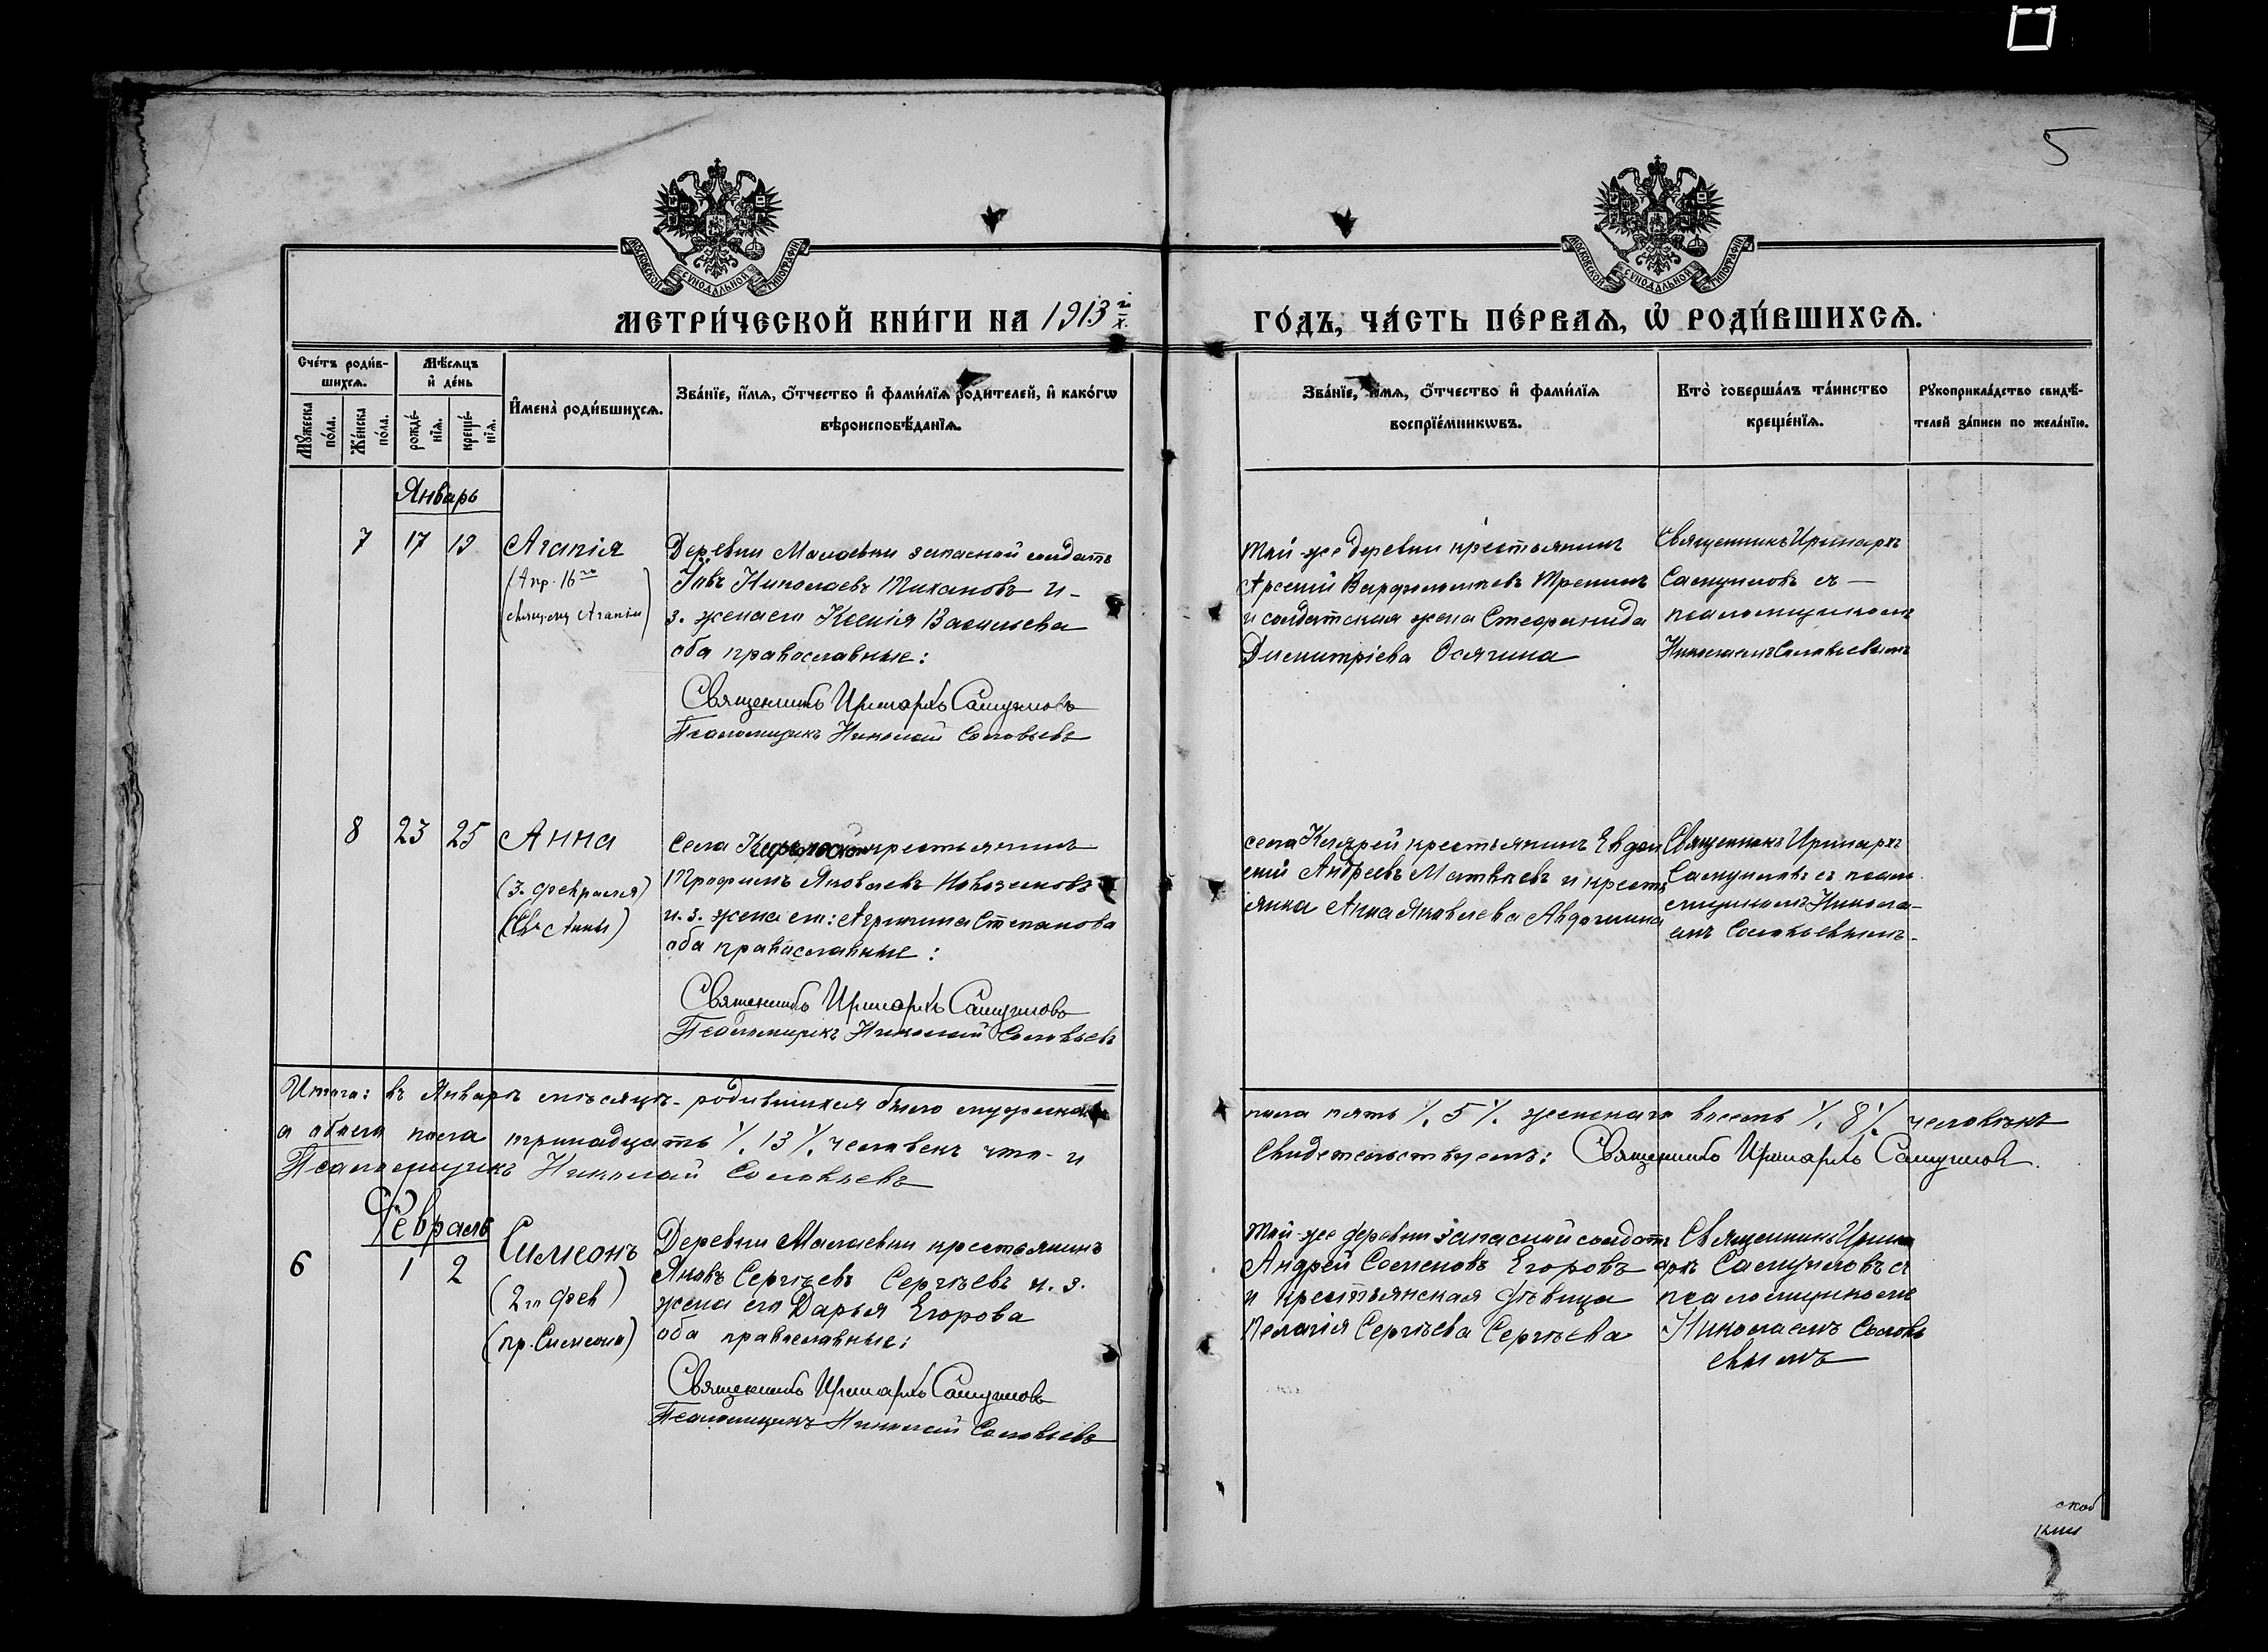 5
МОСКОВСКОЙ СѴНОДАЛЬНОЙ ТИПОГРАФІИ
МОСКОВСКОЙ СѴНОДАЛЬНОЙ ТИПОГРАФІИ
МЕТРИ́ЧЕСКОЙ КНИ́ГИ НА 1913 г.
ГО́ДЪ, ЧА́СТЬ ПЕ́РВАѦ, Ѡ҆ РОДИ́ВШИХСѦ.
Сче́тъ роди́в-
шихсѧ.
Мѣ́сѧцъ
и҆ де́нь
Мꙋ́жеска
по́ла.
Же́нска
по́ла.
рожде́-
нїѧ.
креще́-
нїѧ.
И҆мена̀ роди́вшихсѧ.
Зва́нїе, и҆́мѧ, ѻ҆́тчество и҆ фами́лїѧ роди́телей, и҆ како́гѡ
вѣроисповѣ́данїѧ.
Зва́нїе, и҆́мѧ, ѻ҆́тчество и҆ фами́лїѧ
воспрїе́мникѡвъ.
Кто̀ соверша́лъ та́инство
креще́нїѧ.
Рꙋкоприкла́дство свидѣ́-
телей за́писи по жела́нїю.
Январь
7 17 19 Агапія
(Апр. 16го
свящ. муч. Агапіи)
Деревни Малаевки запасной солдатъ
Іовъ Николаевъ Тихановъ и
з. жена его Ксенія Васильева
оба православные:
Священникъ Иринархъ Самуиловъ
Псаломщикъ Николай Соловьевъ
той-же деревни крестьянинъ
Арсеній Варфоломеевъ Тренинъ
и солдатская жена Стефанида
Димитріева Осягина
Священникъ Иринархъ
Самуиловъ съ
псаломщикомъ
Николаемъ Соловьевымъ
8 23 25 Анна
(3. февраля)
(Св. Анны)
села крестьянинъ
Трофимъ Яковлевъ Новоземовъ
и. з. жена его: Агрипина Степанова
оба православные:
Священникъ Иринархъ Самуиловъ
Псаломщикъ Николай Соловьевъ
села крестьянинъ Евдом
скій Андреевъ Матвѣевъ и крестъ
янка Анна Яковлева Авдошина
Священникъ Иринархъ
Самуиловъ съ псалом
щикомъ Никола-
емъ Соловьевымъ
Итого: въ Январѣ мѣсяцѣ родившихся было мужеска
пола пять /. 5 /. женскаго восемь /. 8 /. человѣкъ
а обоего пола тринадцать /. 13 /. человѣкъ что и
свидетельствуемъ: Священникъ Иринархъ Самуиловъ.
Псаломщикъ Николай Соловьевъ
Февраль
6 1 2 Симеонъ
(2го фев)
(пр. Симеона)
Деревни Малаевки крестьянинъ
Яковъ Сергѣевъ Сергѣевъ и. з.
жена его Дарья Егорова
оба православные:
Священникъ Иринархъ Самуиловъ
Псаломщикъ Николай Соловьевъ
той-же деревни запасной солдатъ
Андрей Семеновъ Егоровъ
и крестьянская дѣвица
Пелагія Сергѣева Сергѣева
Священникъ Ирин
архъ Самуиловъ съ
псаломщикомъ
Николаемъ Соловь
евымъ